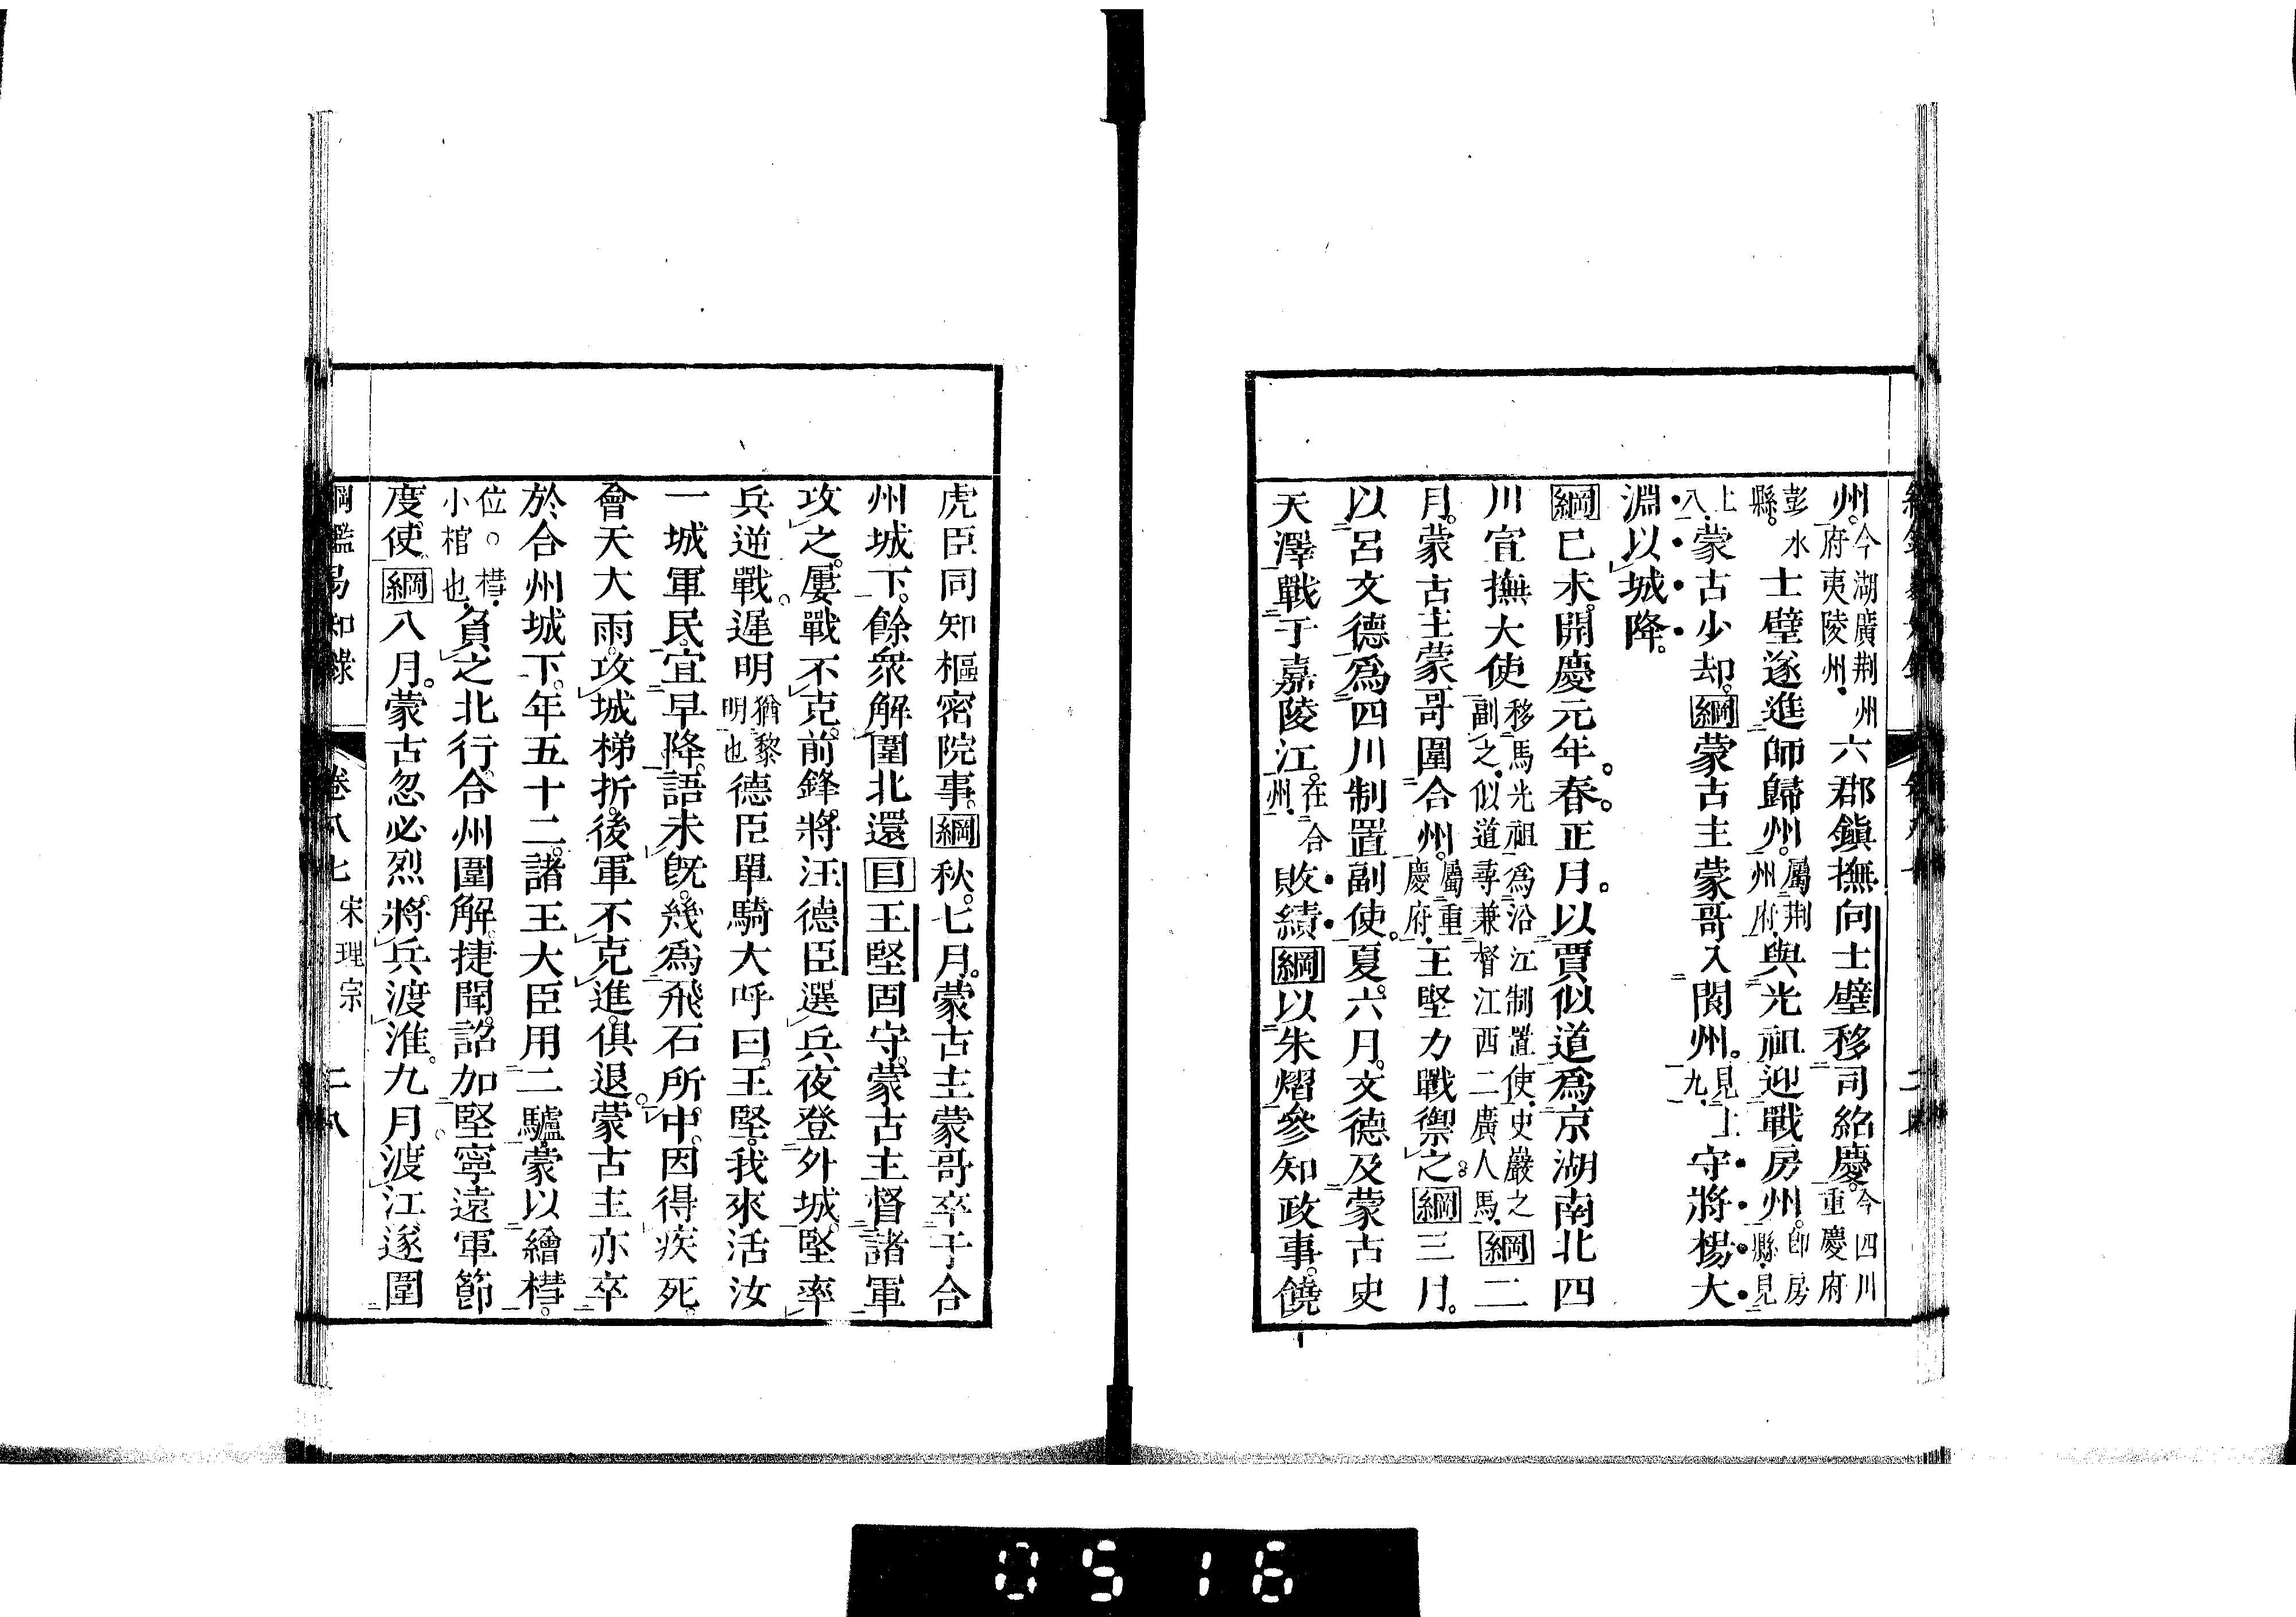 州。今湖廣荆州府夷陵州。六郡鎮撫向士璧移司紹慶。今四川重慶府
彭水縣。士璧遂進師歸州。屬荆州府。與光祖迎戰房州。卽房縣。見
上八。蒙古少却。綱蒙古主蒙哥入閬州。見上九。守將楊大
淵以城降。
綱己未。開慶元年。春。正月。以賈似道爲京湖南北四
川宣撫大使移馬光祖爲沿江制置使。史巖之副之。似道尋兼督江西二廣人馬。綱二
月。蒙古主蒙哥圍合州。屬重慶府。王堅力戰禦之。綱三月。
以呂文德爲四川制置副使。夏。六月。文德及蒙古史
天澤戰于嘉陵江。在合州。敗績綱以朱熠參知政事。饒
虎臣同知樞密院事。綱秋。七月。蒙古主蒙哥卒于合
州城下。餘衆解圍北還目王堅固守。蒙古主督諸軍
攻之。屢戰不克。前鋒將汪德臣選兵夜登外城。堅率
兵逆戰。遲明猶黎明也德臣單騎大呼曰。王堅。我來活汝
一城軍民。宜早降。語未旣。幾爲飛石所中。因得疾死。
會天大雨。攻城梯折。後軍不克進。俱退。蒙古主亦卒
於合州城下。年五十二。諸王大臣用二驢。蒙以繪槥。
位。○槥。小棺也。負之北行。合州圍解。捷聞。詔加堅寧遠軍節
度使。綱八月。蒙古忽必烈。將兵渡淮。九月。渡江。遂圍
綱鑑易知錄 卷八七 宋理宗 二八
0516